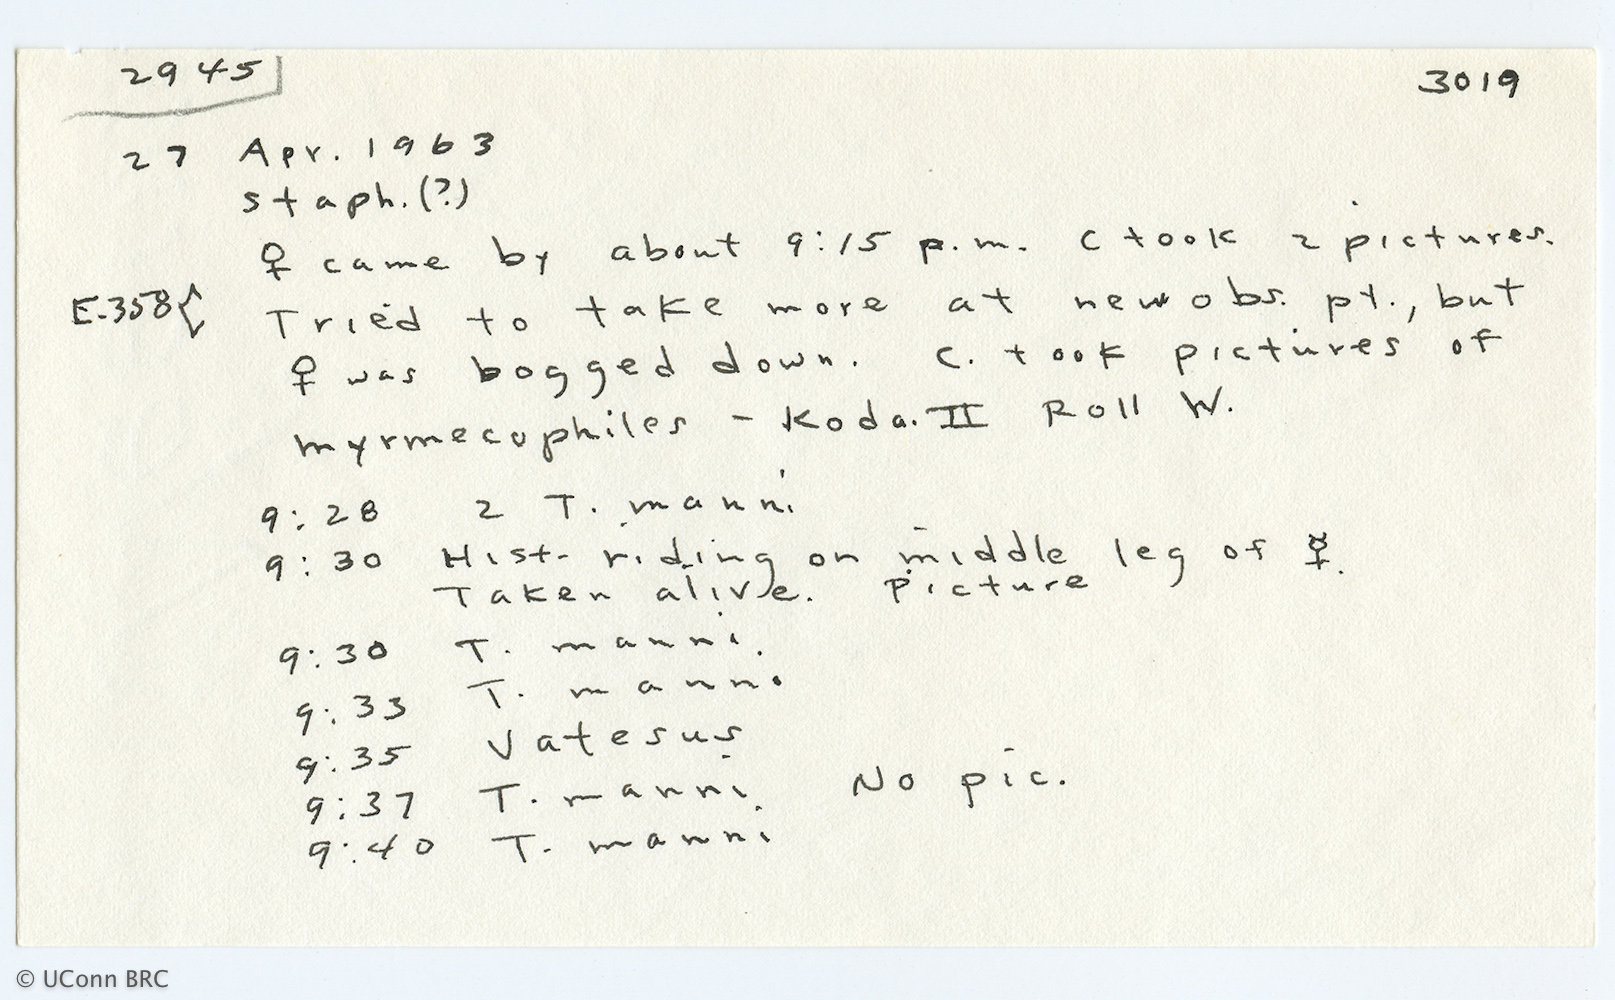 2945
3019
27 Apr. 1963
staph. (?)
♀ came by about 9:15 p.m. C took 2 pictures.
E-358{ Tried to take more at new obs. pt., but
♀ was bogged down. C. took pictures of
myrmecophiles - Koda. II Roll W.
9:28 2 T. manni
9:30 Hist. riding on middle leg of ☿.
Taken alive. Picture
9:30 T. manni.
9:33 T. manni
9:35 Vatesus
9:37 T. manni. No pic.
9:40 T. manni
© UConn BRC